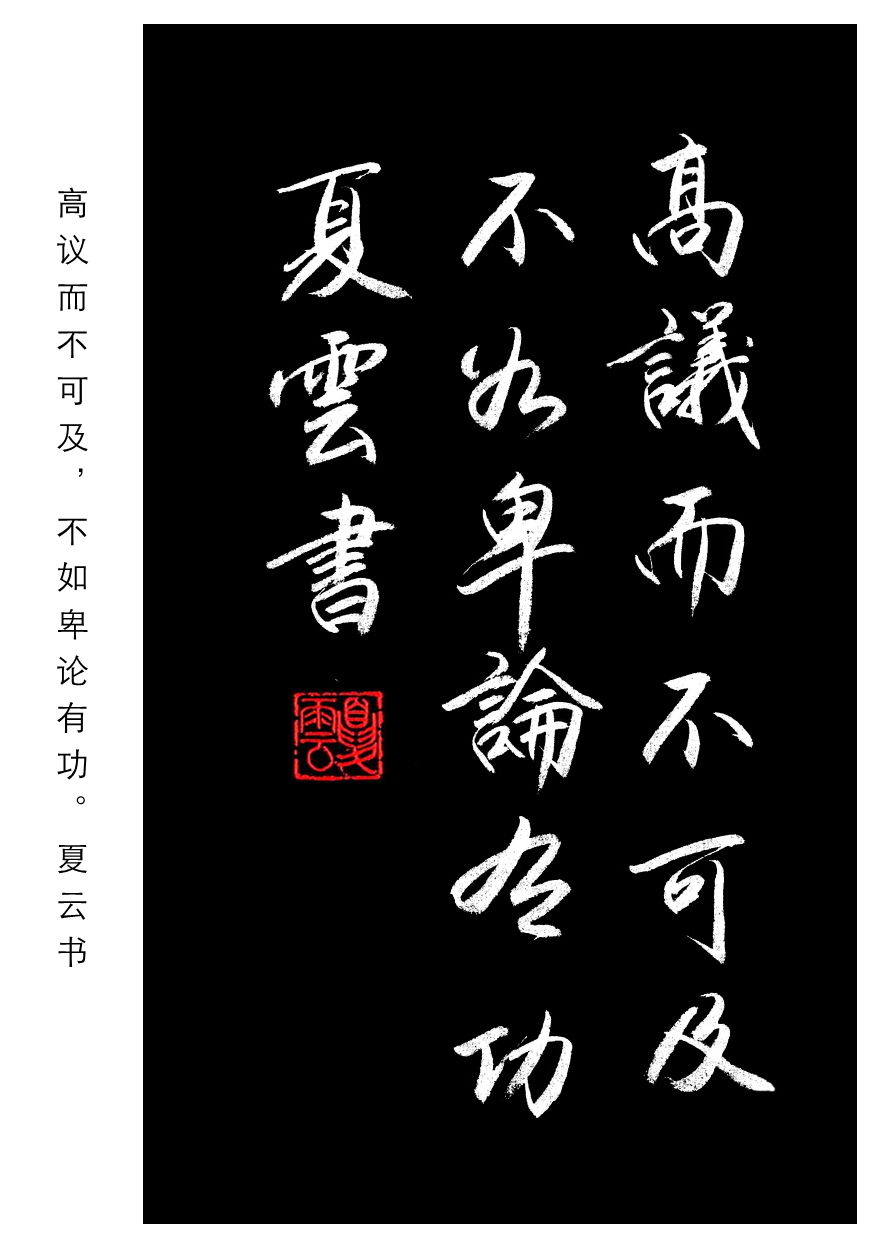 高議而不可及
不如卑論有功
夏雲書
夏雲
高议而不可及，不如卑论有功。夏云书